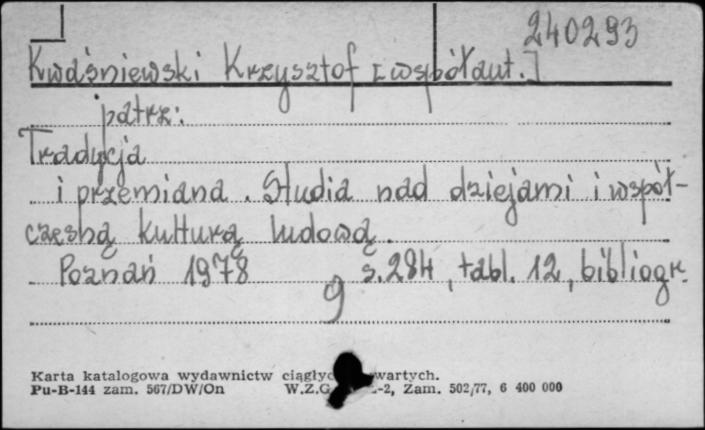 240293
Kwaśniewski Krzysztof [współaut.]
patrz:
Tradycja
i przemiana. Studia nad dziejami i współ-
czesną kulturą ludową.
Poznań 1978 s. 284, tabl. 12, bibliogr.
g
Karta katalogowa wydawnictw wartych.
Pu-B-144 zam. 567/DW/On W.Z.G. -2, Zam. 502/77, 6 400 000